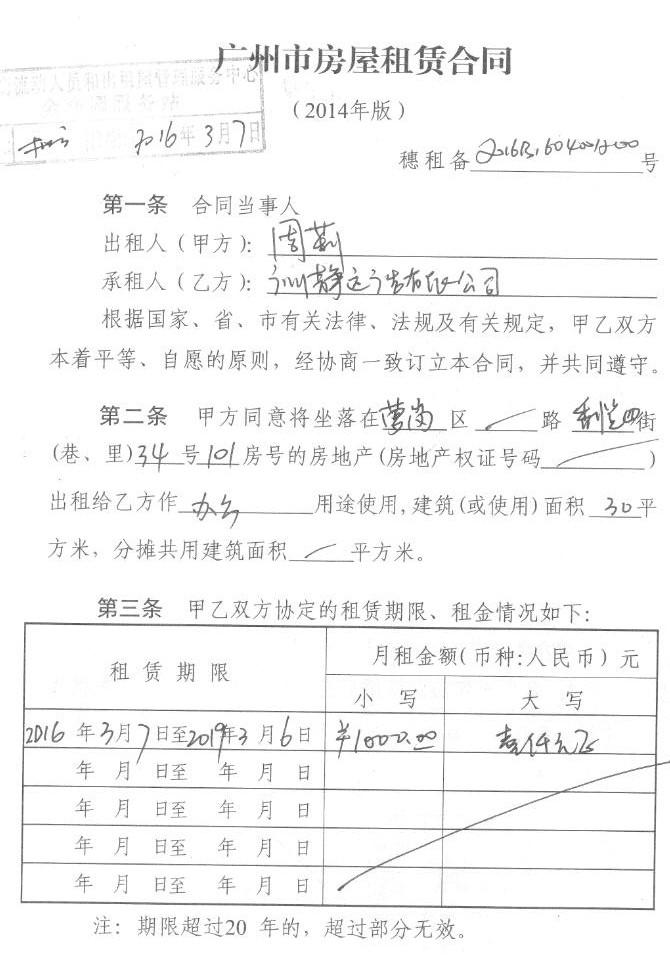 广州市房屋租赁合同
流动人员和出租屋管理服务中心
(2014年版)
2016年3月7日
穗租备号
第一条 合同当事人
出租人(甲方):周莉
承租人(乙方):广州静达广告有限公司
根据国家、省、市有关法律、法规及有关规定,甲乙双方
本着平等、自愿的原则,经协商一致订立本合同,并共同遵守。
第二条 甲方同意将坐落在萝岗区路街
(巷、里)34号101房号的房地产(房地产权证号码)
出租给乙方作办公用途使用,建筑(或使用)面积30平
方米,分摊共用建筑面积平方米。
第三条 甲乙双方协定的租赁期限、租金情况如下:
租赁期限
月租金额(币种:人民币)元
小写 大写
2016年3月7日至2019年3月6日 ¥1000.00 壹仟元正
年 月 日至 年 月 日
年 月 日至 年 月 日
年 月 日至 年 月 日
年 月 日至 年 月 日
注:期限超过20 年的,超过部分无效。